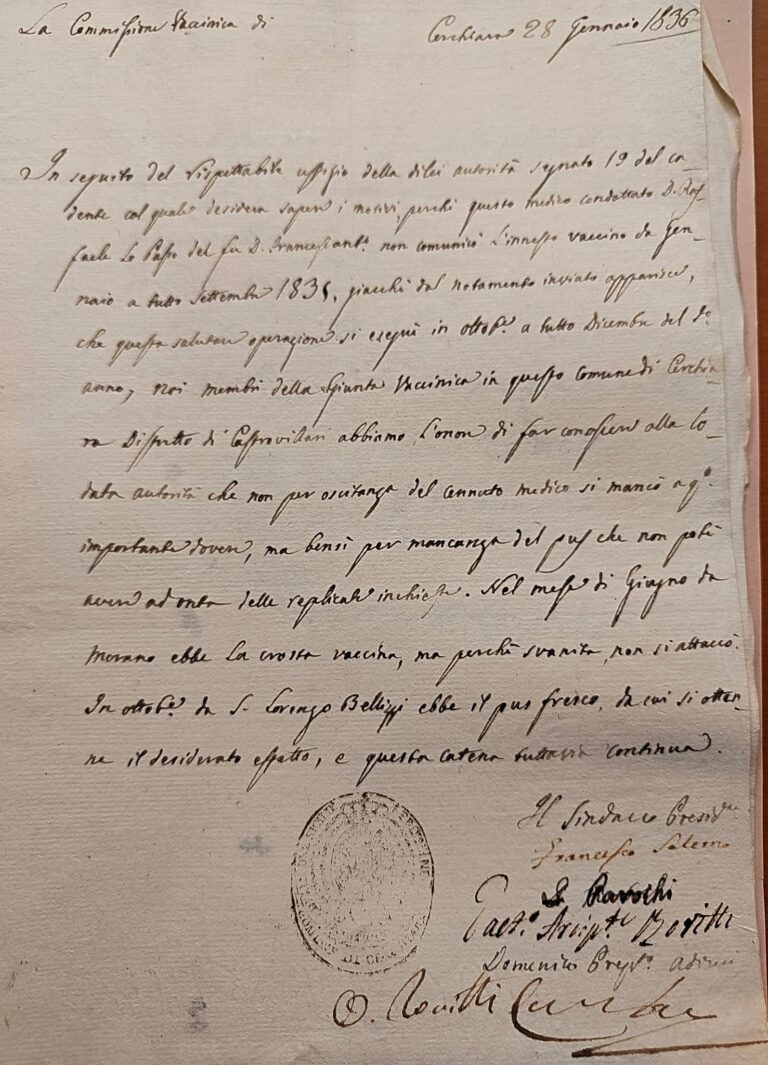 La Commissione Vaccinica di
Cerchiara 28 Gennaio 1836
In seguito del rispettabile uffizio della dilei autorità segnato 19 del ca-
dente col quale desidera sapere i motivi, perché questo medico condottato D. Raf-
faele Lo Passo del fu D. Francescant.º non comunicò l'innesto vaccino da Gen-
naio a tutto Settembre 1835, giacché dal notamento inviato apparisce,
che questa salutare operazione si eseguì in ottob.e a tutto Dicembre del d.º
anno, noi membri della Giunta Vaccinica in questo comune di Cerchia-
ra Distretto di Castrovillari abbiamo l'onore di far conoscere alla lo-
data autorità che non per oscitanza del cennato medico si mancò a q.º
importante dovere, ma bensì per mancanza del pus che non poté
avere ad onta delle replicate inchieste. Nel mese di Giugno da
Morano ebbe la crosta vaccina, ma perché svanita, non si attaccò.
In ottob.e da S. Lorenzo Bellizzi ebbe il pus fresco, da cui si otten-
ne il desiderato effetto, e questa catena tuttavia continua.
Il Sindaco Presid.te
Francesco Salerno
I Parochi
Gaet.º Arcip.te Rovitti
Domenico
D. Rovitti
DI CERCHIARA